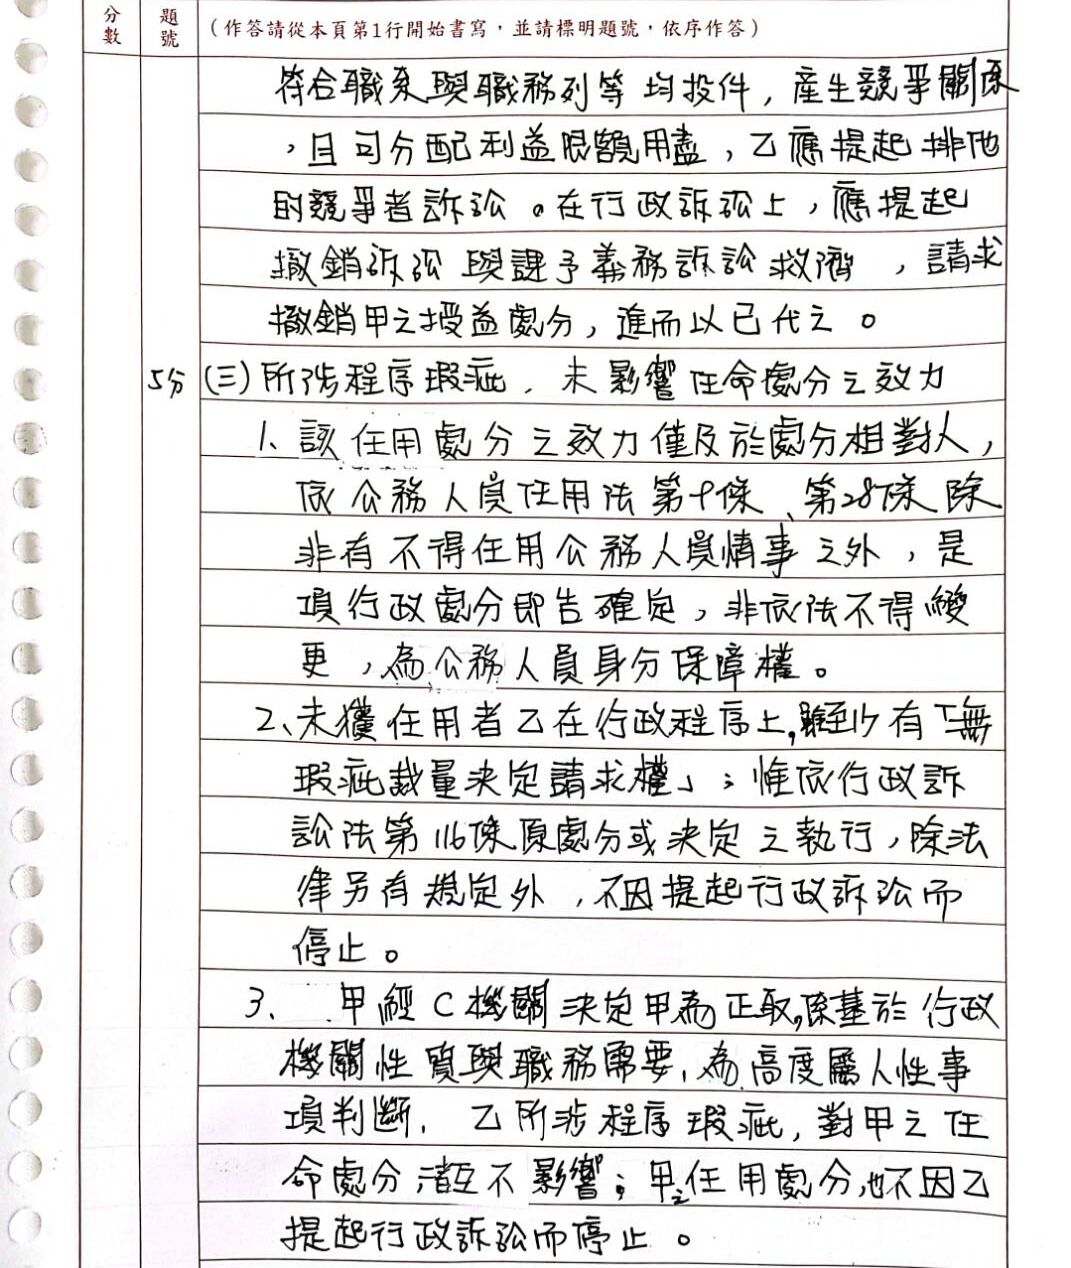 分數 題號 (作答請從本頁第1行開始書寫,並請標明題號,依序作答)
符合職系與職務列等均投件,產生競爭關係
,且可分配利益限額用盡,乙應提起排他
的競爭者訴訟。在行政訴訟上,應提起
撤銷訴訟與課予義務訴訟救濟,請求
撤銷甲之授益處分,進而以己代之。
5分 (三)所涉程序瑕疵,未影響任命處分之效力
1、該任用處分之效力僅及於處分相對人,
依公務人員任用法第十條、第28條除
非有不得任用公務人員情事之外,是
項行政處分即告確定,非依法不得變
更,為公務人員身分保障權。
2、未獲任用者乙在行政程序上,雖至少有「無
瑕疵裁量決定請求權」;惟依行政訴
訟法第116條原處分或決定之執行,除法
律另有規定外,不因提起行政訴訟而
停止。
3、甲經C機關決定甲為正取,係基於行政
機關性質與職務需要,為高度屬人性事
項判斷,乙所涉程序瑕疵,對甲之任
命處分不影響;甲之任用處分,也不因乙
提起行政訴訟而停止。